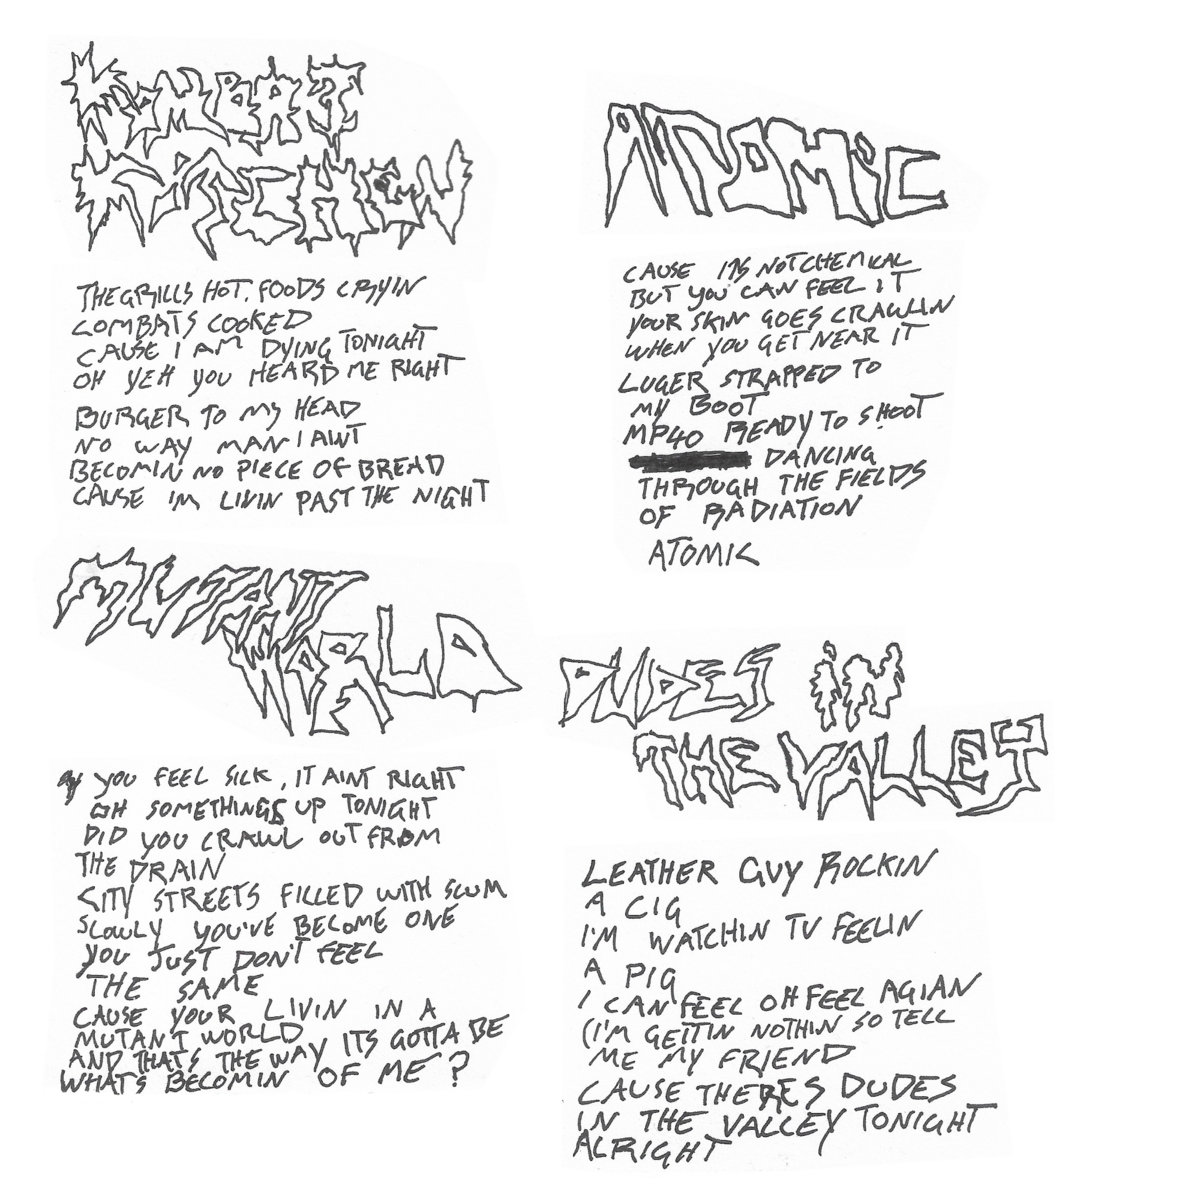 KOMBAT
KITCHEN
THE GRILLS HOT, FOODS CRYIN
COMBATS COOKED
CAUSE I AM DYING TONIGHT
OH YEH YOU HEARD ME RIGHT
BURGER TO MY HEAD
NO WAY MAN I AINT
BECOMIN NO PIECE OF BREAD
CAUSE I'M LIVIN PAST THE NIGHT
ATOMIC
CAUSE ITS NOT CHEMICAL
BUT YOU CAN FEEL IT
YOUR SKIN GOES CRAWLIN
WHEN YOU GET NEAR IT
LUGER STRAPPED TO
MY BOOT
MP40 READY TO SHOOT
DANCING
THROUGH THE FIELDS
OF RADIATION
ATOMIC
MUTANT
WORLD
YOU FEEL SICK, IT AINT RIGHT
OH SOMETHINGS UP TONIGHT
DID YOU CRAWL OUT FROM
THE DRAIN
CITY STREETS FILLED WITH SCUM
SLOWLY YOU'VE BECOME ONE
YOU JUST DON'T FEEL
THE SAME
CAUSE YOUR LIVIN IN A
MUTANT WORLD
AND THAT'S THE WAY ITS GOTTA BE
WHAT'S BECOMIN OF ME?
DUDES IN
THE VALLEY
LEATHER GUY ROCKIN
A CIG
I'M WATCHIN TV FEELIN
A PIG
I CAN FEEL OH FEEL AGIAN
(I'M GETTIN NOTHIN SO TELL
ME MY FRIEND
CAUSE THERES DUDES
IN THE VALLEY TONIGHT
ALRIGHT